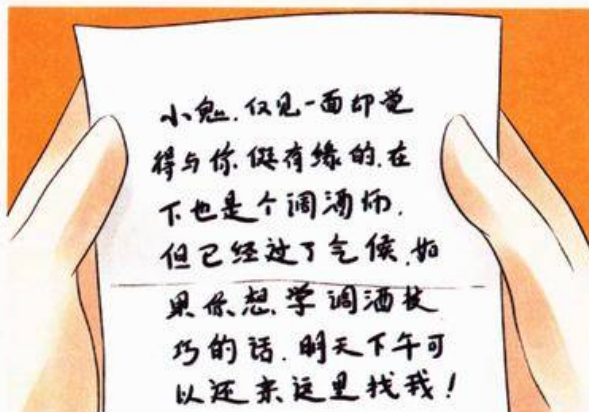 小鬼.仅见一面却觉
得与你挺有缘的.在
下也是个调酒师.
但已经过了气候.如
果你想学调酒技
巧的话.明天下午可
以还来这里找我！